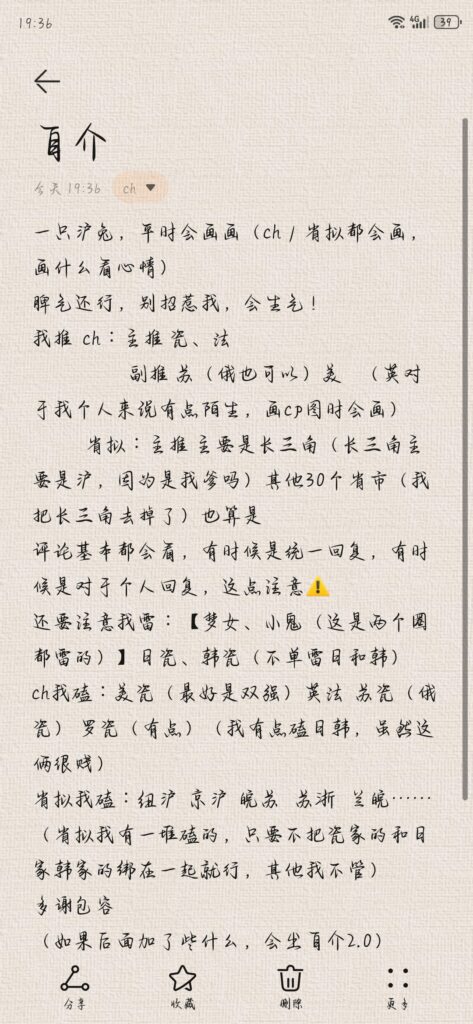 19:36
4G
39
自介
今天 19:36
ch
一只沪兔，平时会画画（ch / 省拟都会画，
画什么看心情）
脾气还行，别招惹我，会生气！
我推 ch：主推 瓷、法
副推 苏（俄也可以）美 （英对
于我个人来说有点陌生，画cp图时会画）
省拟：主推 主要是长三角（长三角主
要是沪，因为是我爹吗）其他30个省市（我
把长三角去掉了）也算是
评论基本都会看，有时候是统一回复，有时
候是对于个人回复，这点注意⚠️
还要注意我雷：【梦女、小鬼（这是两个圈
都雷的）】日瓷、韩瓷（不单雷日和韩）
ch我磕：美瓷（最好是双强）英法 苏瓷（俄
瓷） 罗瓷（有点）（我有点磕日韩，虽然这
俩很贱）
省拟我磕：纽沪 京沪 皖苏 苏浙 兰皖……
（省拟我有一堆磕的，只要不把瓷家的和日
家韩家的绑在一起就行，其他我不管）
多谢包容
（如果后面加了些什么，会出自介2.0）
分享
收藏
删除
更多